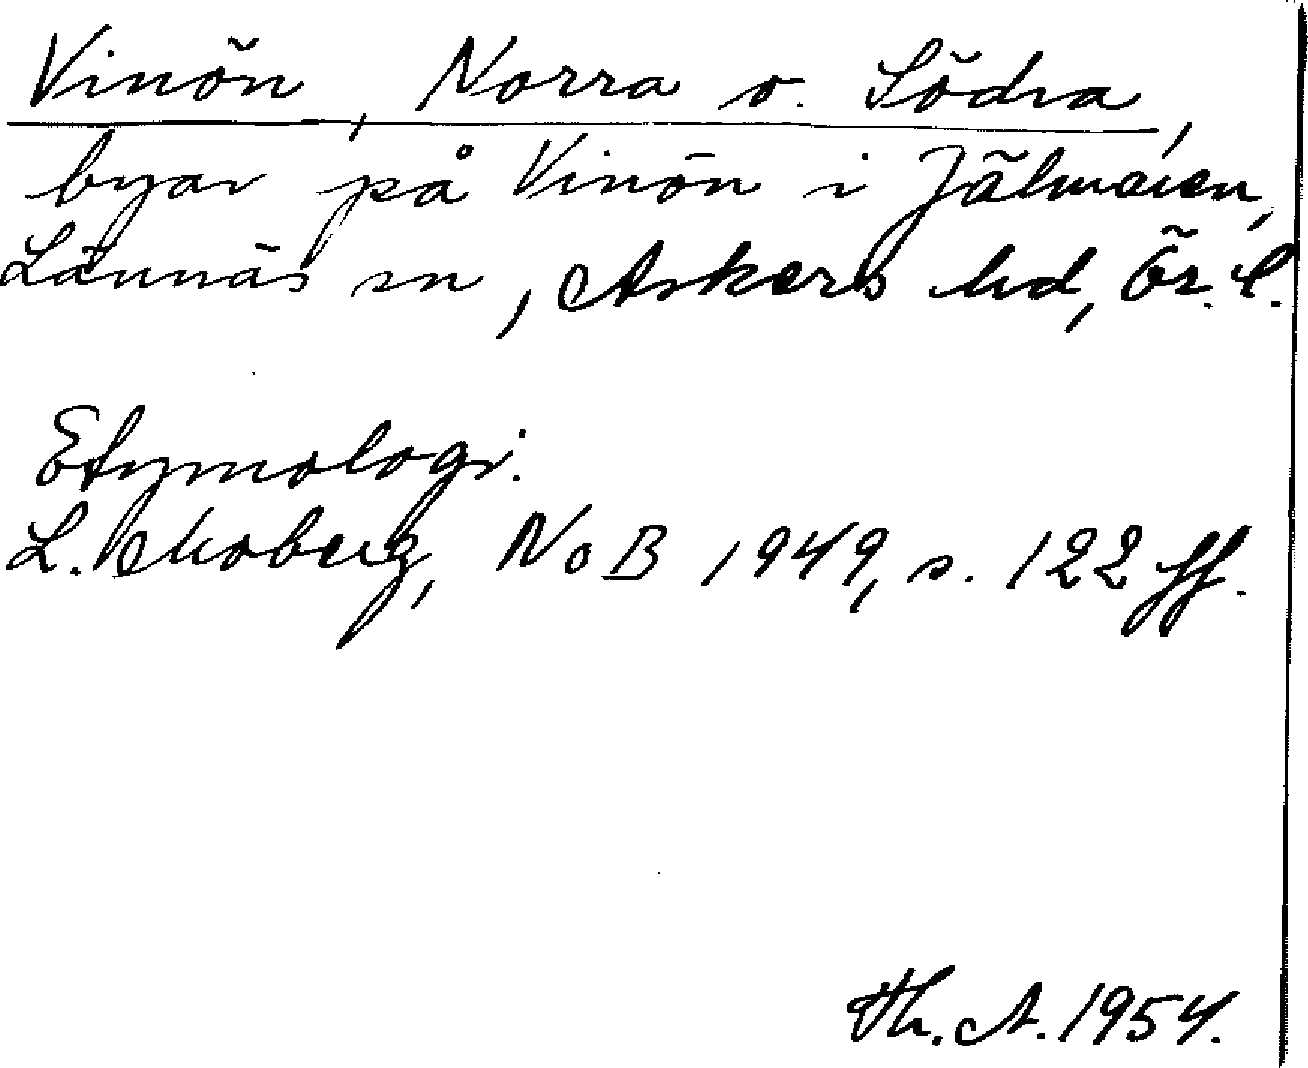 Vinön, Norra o. Södra,
byar på Vinön i Jälmaren,
Lännäs sn, Askers hd, Ör. l.
Etymologi.
L. Moberg, NoB 1949, s. 122 ff.
Th. A. 1954.